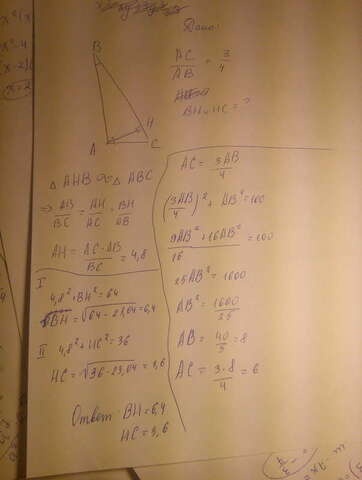 Дано:
AC/AB = 3/4
BH и HC = ?
B
H
A
C
△ AHB ∾ △ ABC
⇒ AB/BC = AH/AC = BH/AB
AH = AC·AB/BC = 4,8
I
4,8² + BH² = 64
BH = √64 - 23,04 = 6,4
II 4,8² + HC² = 36
HC = √36 - 23,04 = 3,6
Ответ: BH = 6,4
HC = 3,6
AC = 3AB/4
(3AB/4)² + AB² = 100
9AB² + 16AB²/16 = 100
25AB² = 1600
AB² = 1600/25
AB = 40/5 = 8
AC = 3·8/4 = 6